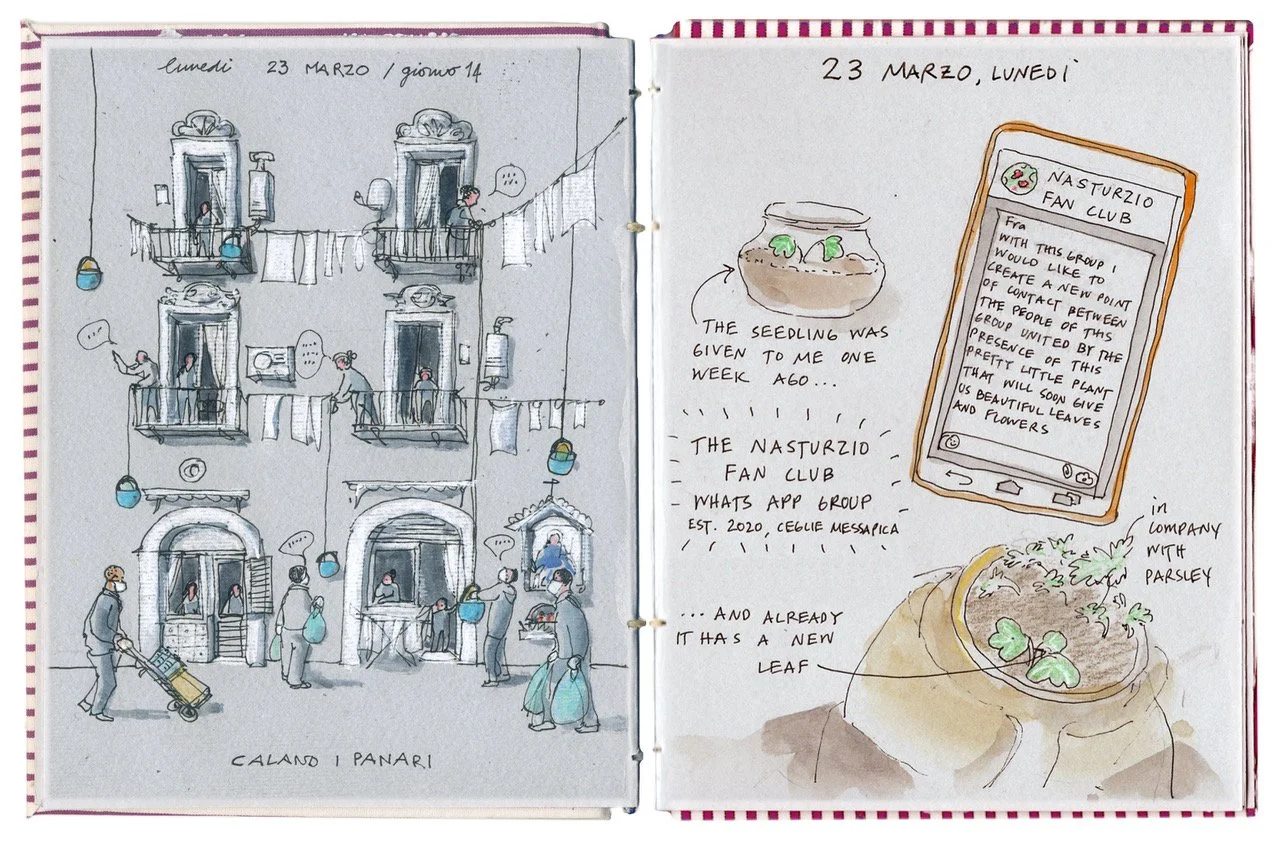 lunedì 23 MARZO / giorno 14
CALANO I PANARI
23 MARZO, LUNEDÌ
THE SEEDLING WAS
GIVEN TO ME ONE
WEEK AGO...
THE NASTURZIO
FAN CLUB
WHATS APP GROUP
EST. 2020, CEGLIE MESSAPICA
NASTURZIO
FAN CLUB
Fra
WITH THIS GROUP I
WOULD LIKE TO
CREATE A NEW POINT
OF CONTACT BETWEEN
THE PEOPLE OF THIS
GROUP UNITED BY THE
PRESENCE OF THIS
PRETTY LITTLE PLANT
THAT WILL SOON GIVE
US BEAUTIFUL LEAVES
AND FLOWERS
in
COMPANY
WITH
PARSLEY
...AND ALREADY
IT HAS A NEW
LEAF